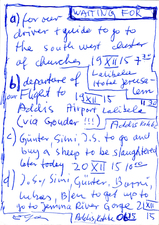 WAITING FOR
a) for our
driver + guide to go to
the south west cluster
of churches 19 XII 15 7 30
Lalibela
Hotel Jerusa-
lem
b) departure of
our Flight to
Addis Airport Lalibela
(via Gonder !!!)
19 XII 15
Addis Ababa
c) Günter Simi, J.S. to go and
buy a sheep to be slaughtered
later today 20 XII 15 10 00
d) J.S., Simi, Günter, Barni,
Lukas, Bjen to get up to
go to Jemma River Gorge 21 XII
Addis Ababa 15